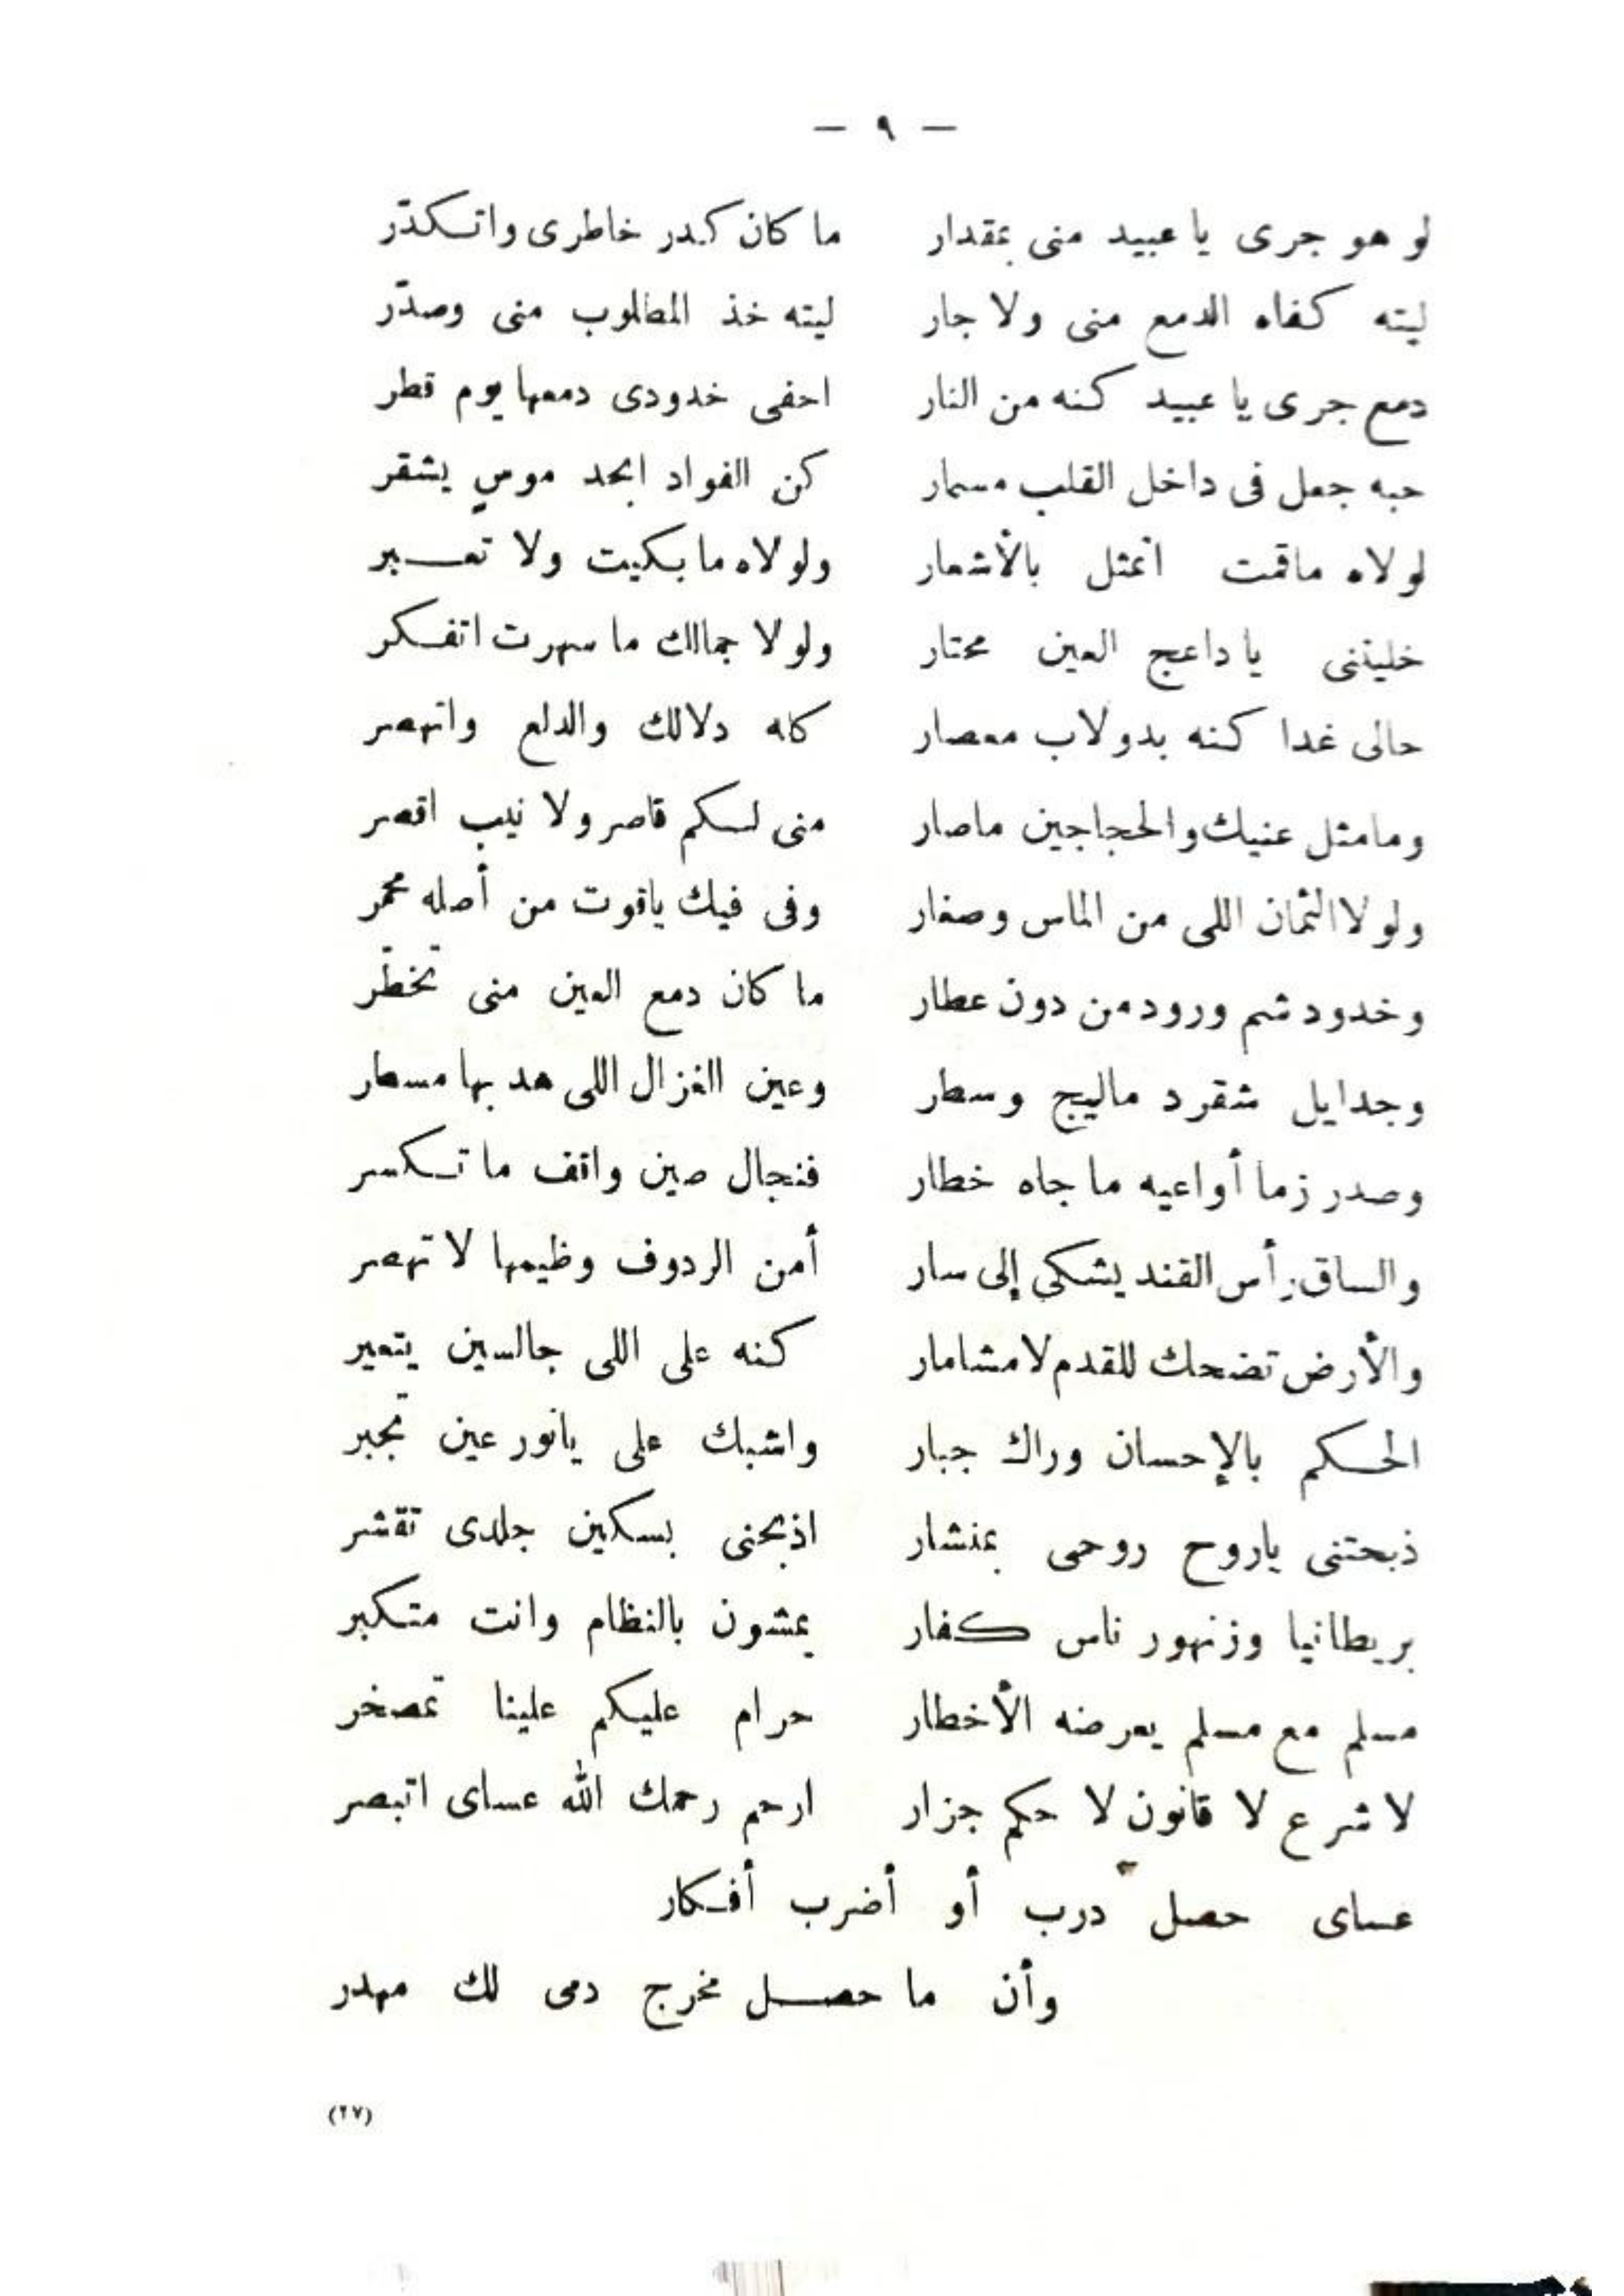 — ٩ —
لو هو جرى يا عبيد منى بمقدار ما كان كدر خاطرى واتكدّر
ليته كفاه الدمع منى ولا جار ليته خذ المطلوب منى وصدّر
دمع جرى يا عبيد كنه من النار احفى خدودى دمعها يوم قطر
حبه جعل فى داخل القلب مسمار كن الفواد ابحد موس يشقر
لولاه ماقمت اتمثل بالأشعار ولولاه ما بكيت ولا تعبر
خليتنى يا داعج العين محتار ولولا جمالك ما سهرت اتفكر
حالى غدا كنه بدولاب معصار كله دلالك والدلع واتهصر
ومامثل عنيك والحجاجين ماصار منى لكم قاصر ولا نيب اقصر
ولولا الثمان اللى من الماس وصغار وفى فيك ياقوت من أصله محمر
وخدود شم ورود من دون عطار ما كان دمع العين منى تخطّر
وجدايل شقرد ماليج وسطر وعين الغزال اللى هدبها مسطار
وصدر زما أواعيه ما جاه خطار فنجال صين واقف ما تكسر
والساق رأس القند يشكى إلى سار أمن الردوف وظيمها لا تهصر
والأرض تضحك للقدم لامشامار كنه على اللى جالسين يتعير
الحكم بالإحسان وراك جبار واشبك على يانور عين تجبر
ذبحتنى ياروح روحى بمنشار اذبحنى بسكين جلدى تقشر
بريطانيا وزنهور ناس كفار يمشون بالنظام وانت متكبر
مسلم مع مسلم يعرضه الأخطار حرام عليكم علينا تمصخر
لا شرع لا قانون لا حكم جزار ارحم رحمك الله عساى اتبصر
عساى حصل درب أو أضرب أفكار
وأن ما حصل مخرج دمى لك مهدر
(٢٧)